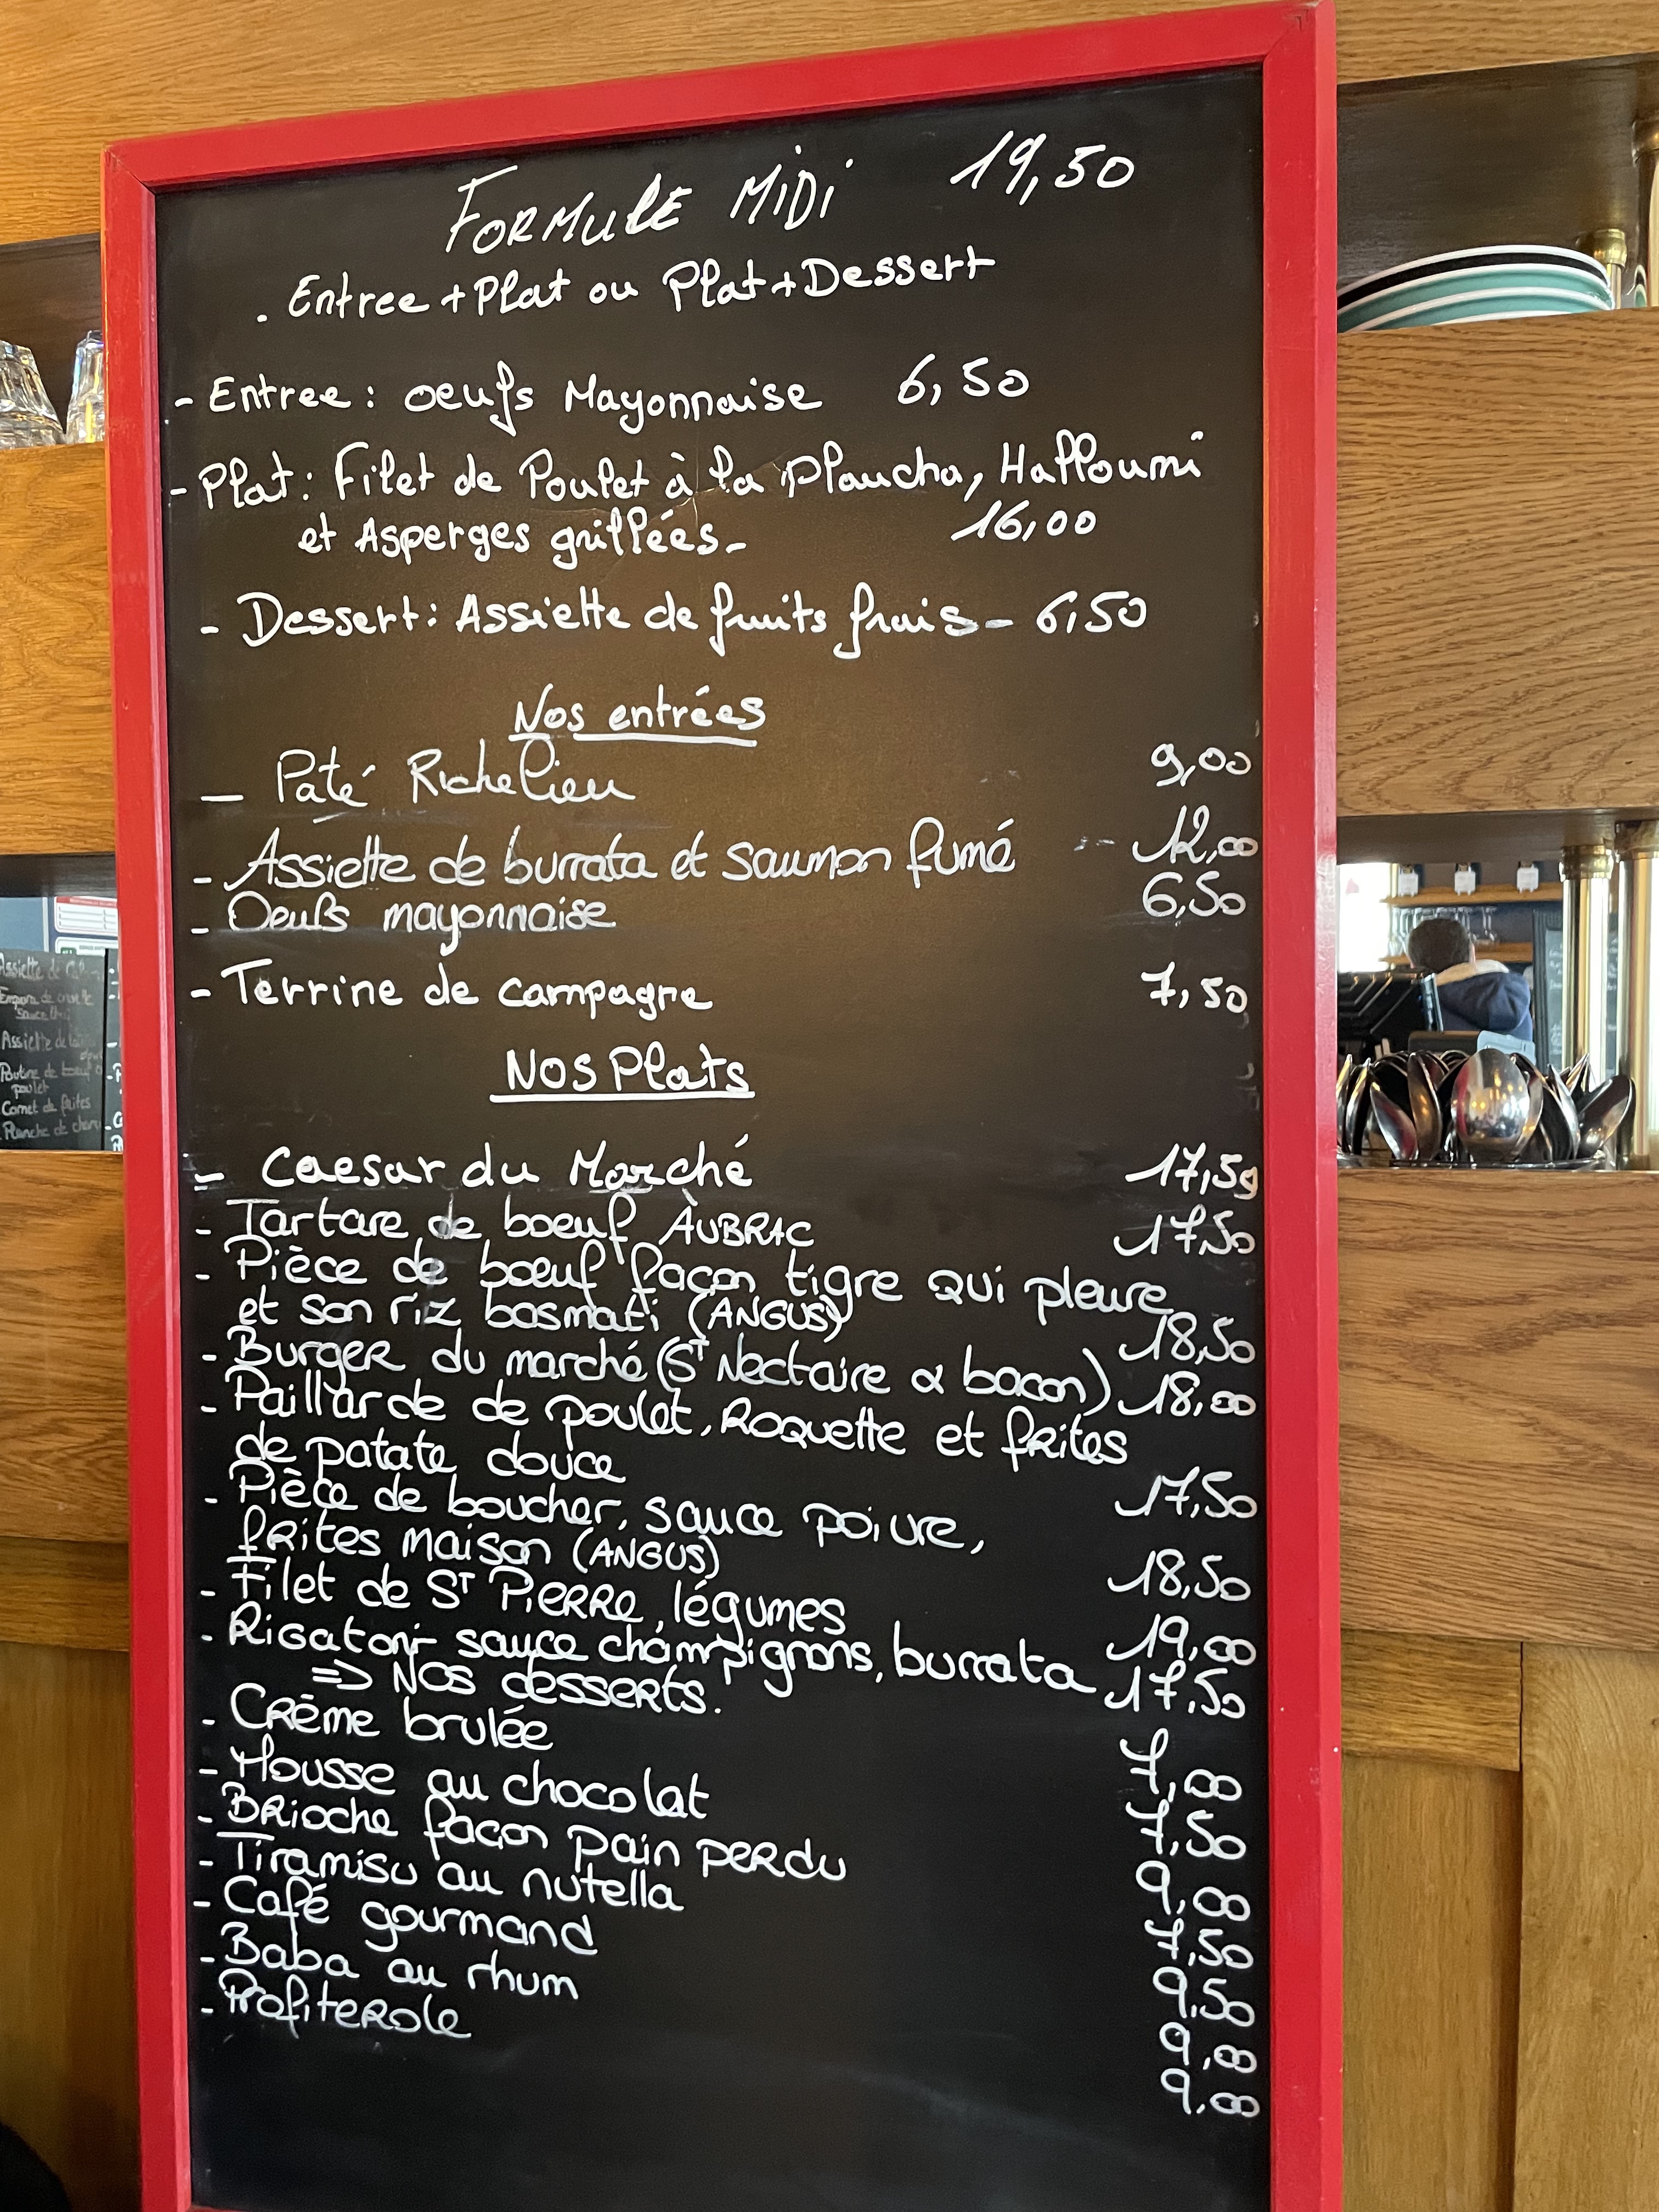 FORMULE MIDI 19,50
. Entree + Plat ou Plat + Dessert
- Entree : oeufs Mayonnaise 6,50
- Plat : Filet de Poulet à la Plancha, Halloumi
et Asperges grillées - 16,00
- Dessert : Assiette de fruits frais - 6,50
Nos entrées
- Pâté Richelieu 9,00
- Assiette de burrata et saumon fumé 12,00
- Oeufs mayonnaise 6,50
- Terrine de campagne 7,50
NOS Plats
- Caesar du Marché 17,50
- Tartare de boeuf AUBRAC 17,50
- Pièce de boeuf façon tigre qui pleure
et son riz basmati (ANGUS) 18,50
- Burger du marché (St Nectaire & bacon) 18,00
- Paillarde de poulet, Roquette et frites
de patate douce 17,50
- Pièce de boucher, sauce poivre,
frites maison (ANGUS) 18,50
- Filet de St PIERRE, légumes 19,00
- Rigatoni sauce champignons, burrata 17,50
=> Nos desserts.
- Crème brulée 7,00
- Mousse au chocolat 7,50
- Brioche façon pain perdu 9,00
- Tiramisu au nutella 7,50
- Café gourmand 9,50
- Baba au rhum 9,00
- Profiterole 9,00
Assiette de
sauce
Assiette de
Poutine de boeuf
poulet
Cornet de frites
Planche de